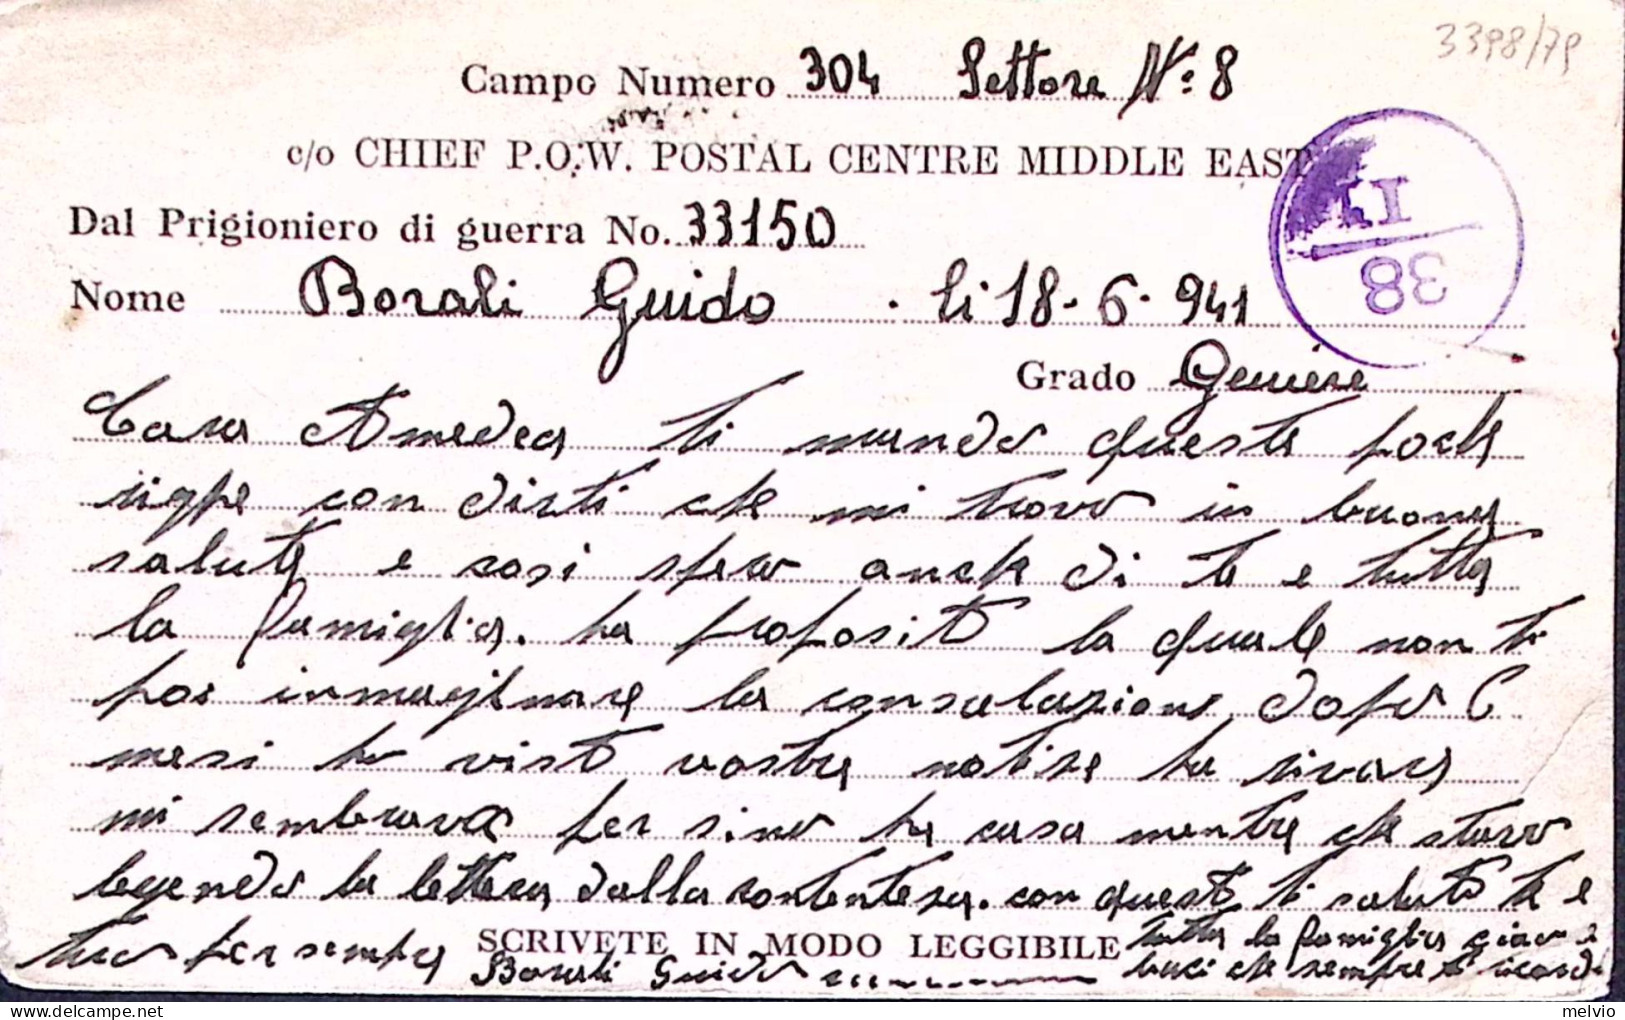 3398/79
Campo Numero 304 Settore N° 8
c/o CHIEF P.O.W. POSTAL CENTRE MIDDLE EAST
38
II
Dal Prigioniero di guerra No. 33150
Nome Borali Guido . li 18-6-941
Grado Geniere
Cara Amedea ti mando queste poche
righe con dirti che mi trovo in buona
salute e così spero anche di te e tutta
la famiglia. ha proposito la quale non ti
poi inmaginare la consolazione dopo 6
mesi ho visto vostre notise ha sivara
mi sembrava per sino ha casa mentre che stavo
legendo la lettera dalla contentesa. con questo ti saluto te e
tutta la famiglia
baci che sempre ti
tuo per sempre
SCRIVETE IN MODO LEGGIBILE
Borali Guido
melvio